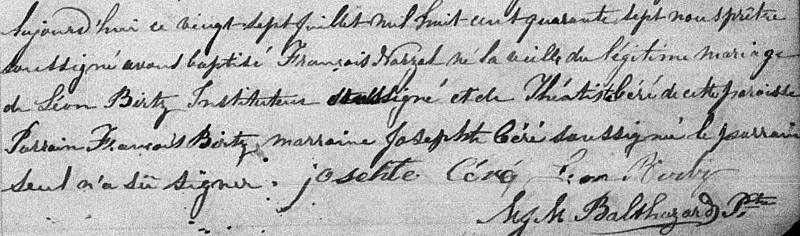 Aujourd'hui ce vingt-sept Juillet mil huit cent quarante sept nous prêtre
soussigné avons baptisé François Narzal né la veille du légitime mariage
de Léon Birtz Instituteur soussigné et de Théatiste Céré de cette paroisse
Parrain François Birtz, marraine Josephte Céré soussigné le parrain
seul n'a sû signer. josephte Céré Leon
M Balthazard Ptre